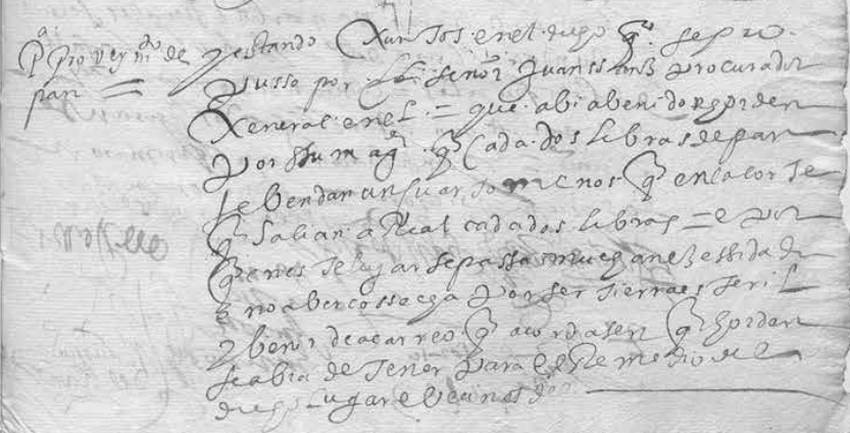 Pa Proveymto de pan =
y estando Xuntos en el dicho qo. se pro
pusso por el señor Juan ssanz Procurador
Xeneral en el = que abia benido horden
Por Su magd. q Cada dos libras de pan
se bendan un cuarto menos q en la corte
q Salian a Real cada dos libras = e por
q en este lugar se passa mucha nezessidad
e no aber cossecha por ser tierra esteril
y benir de acarreo q acordasen q horden
se abia de Tener para el Remedio del
dicho Lugar e Vecinos del